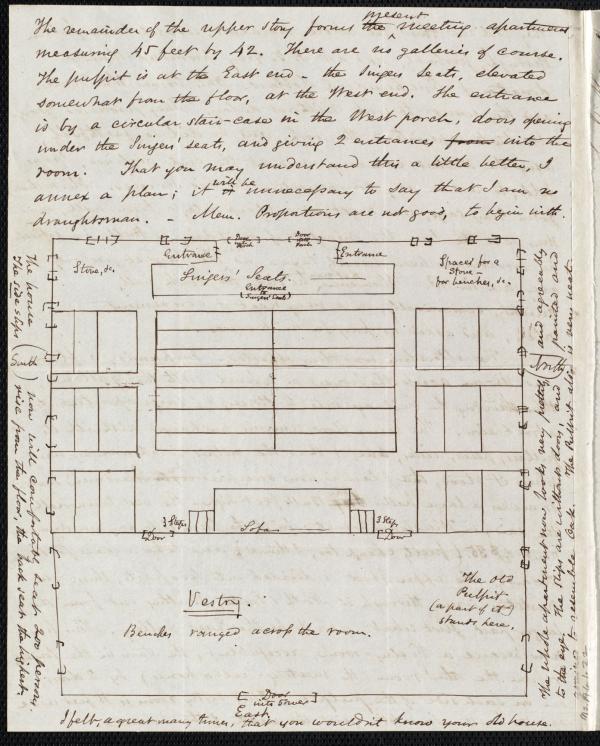 The remainder of the upper story forms the present meeting apartment
measuring 45 feet by 42. There are no galleries of course.
The pulpit is at the East end - the Singers Seats, elevated
somewhat from the floor, at the West end. The entrance
is by a circular stair-case in the West porch, doors opening
under the Singers' seats, and giving 2 entrances from into the
room. That you may understand this a little better, I
annex a plan; it will be unnecessary to say that I am no
draughtsman. - Mem. Proportions are not good, to begin with.
Entrance
Door
Door
Entrance
Stove, &c.
Singers' Seats.
Entrance
to
Singers' Seats
Spaced for a
Stove -
for benches, &c.
South
North
3 Steps
Sofa
3 Steps
Door
Door
Vestry.
Benches ranged across the room.
The Old
Pulpit
(a part of it)
stands here.
Door
into tower
East
I felt, a great many times, that you wouldn't know your old house.
The house now will comfortably seat 200 persons.
The side slips rise from the floor, the back seat the highest.
The whole apartment now looks very pretty and agreeably
to the eye. The slips are without doors, and painted and
to resemble Oak. The Pulpit also is very neat.